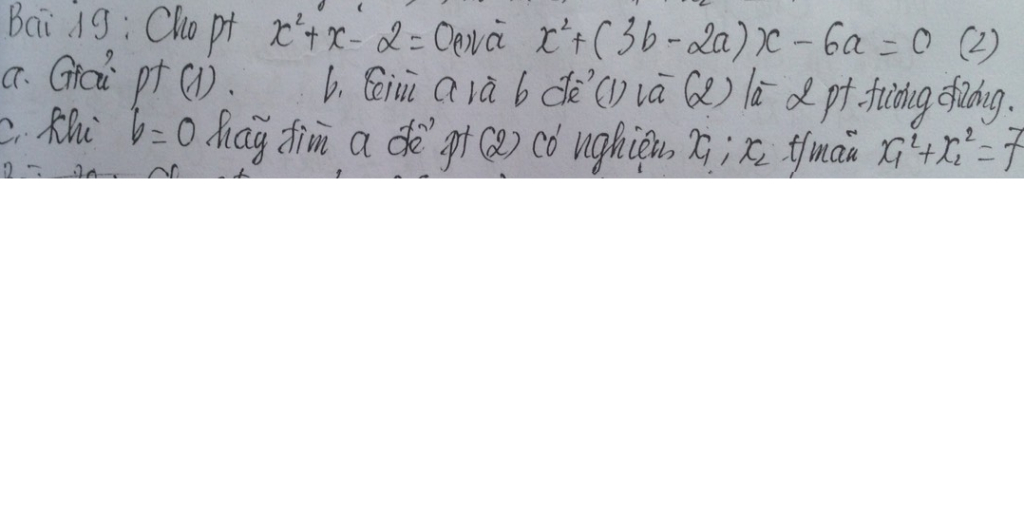 Bài 19: Cho pt x²+x-2=0(1) và x²+(3b-2a)x-6a=0 (2)
a. Giải pt (1). b. Tìm a và b để (1) và (2) là 2 pt tương đương.
c. Khi b=0 hãy tìm a để pt (2) có nghiệm x₁; x₂ t/mãn x₁²+x₂²=7